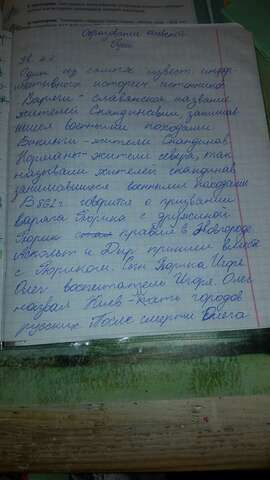 Образование киевской
Руси
Один из самых извест. инфор
мативного историч. источника
Варяги - славянское название
жителей Скандинавии занимав
шиеся военными походами
Викинги - жители Скандинав.
Норманн - жители севера, так
называли жителей скандинав
занимавшиеся военными походами
В 862 г. говорится о призвании
варяга Рюрика с дружиной
Рюрик правил в Новгороде
Аскольт и Дир пришли вместе
с Рюриком. Сын Рюрика Игорь
Олег воспитатель Игоря. Олег
назвал Киев - мать городов
русских После смерти Олега